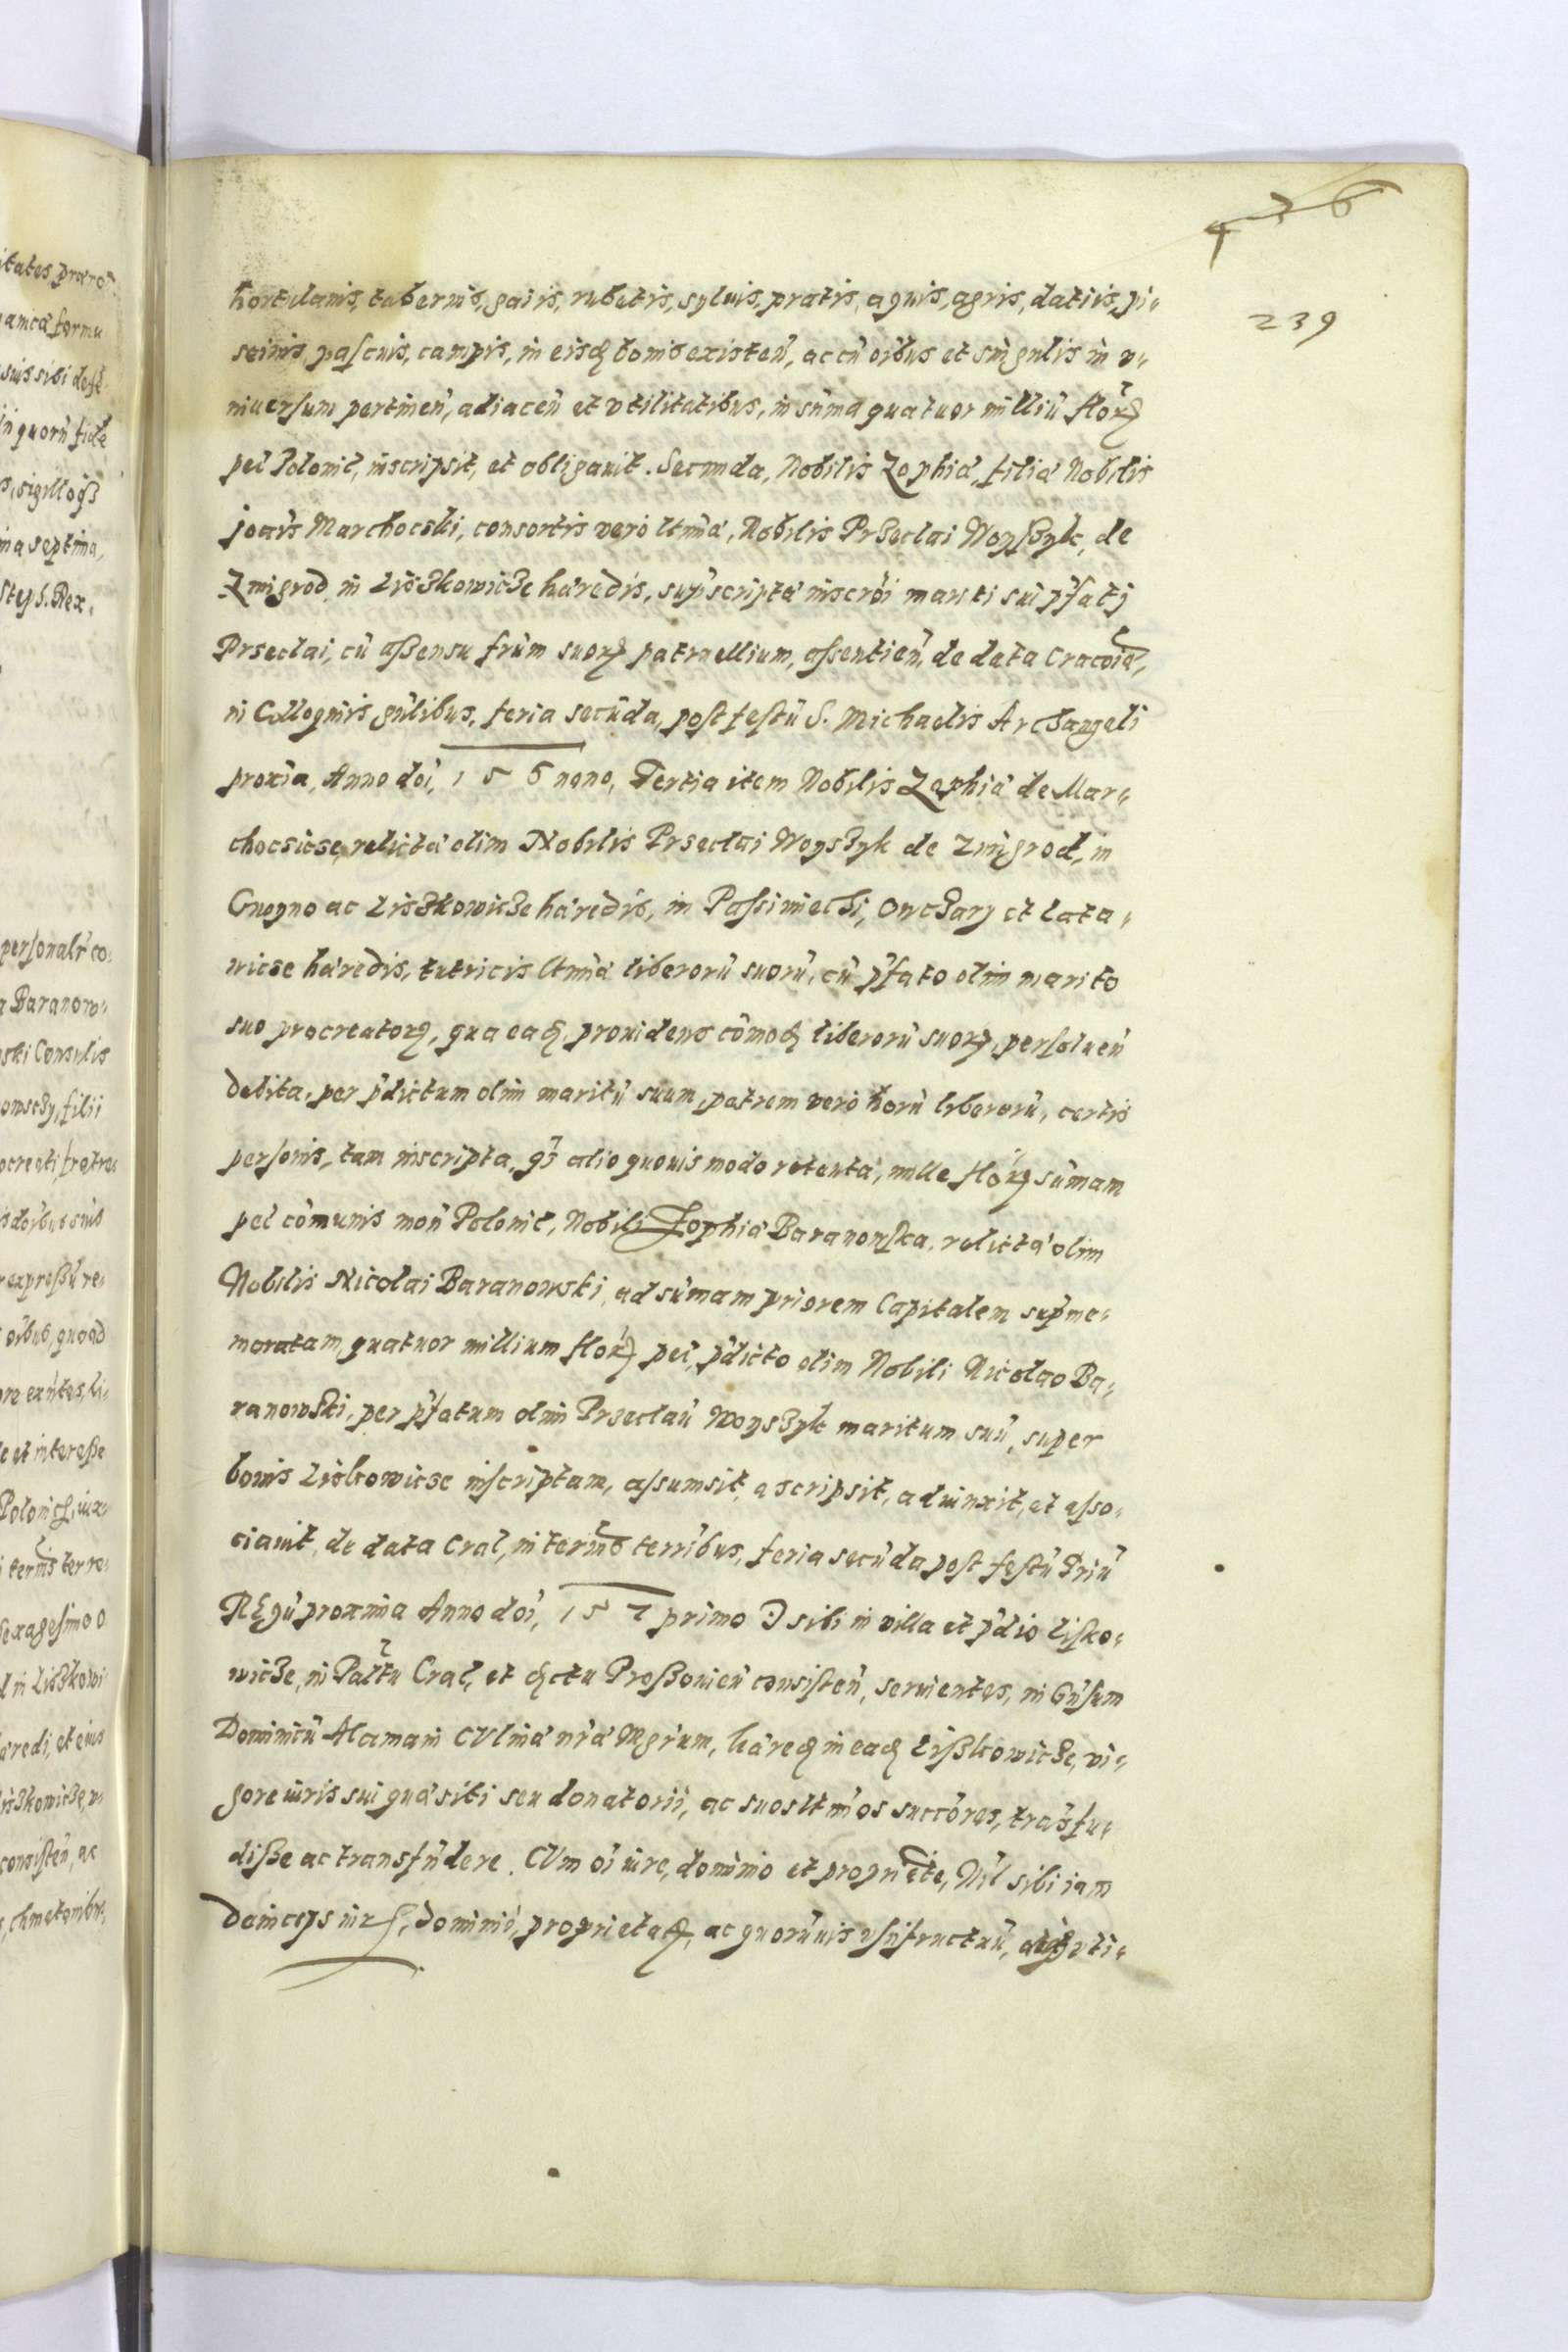 436
239
hortulanis, tabernis, gaiis, rubetis, syluis, pratis, aquis, agris, datiis, pi-
scinis, pascuis, campis, in eisq bonis existeñ, ac cũ oĩbus et singulis in v-
niuersum pertineñ, adiaceñ et vtilitatibus, in sũma quatuor milliũ flor
pec̃ Polonic̃, inscripsit, et obligauit. Secunda, Nobilis Zophia, filia Nobilis
joañis Marchocski, consortis vero ltimæ, Nobilis Przeclai Woyszyk, de
Zmigrod, in Liszkowicze hæredis, supscripta inscrõi mariti sui pfatj
Przeclai, cũ assensu frũm suor patruellium, assentieñ, de data Cracouiæ,
in Colloquiis gñlibus, feria secũda, post festũ S. Michaelis Archangeli
proxĩa, Anno doĩ, 156 nono, Tertia item Nobilis Zophia de Mar-
chocsicse relicta olim Nobilis Prseclai Woyszyk de Zmigrod, in
Gnoyno ac Liszkowicze hæredis, in Passimiechi, Owczary et Lata-
nicse hæredis, tutricis ltimæ liberorũ suorũ, cũ pfato olim marito
suo procreator, qua eaq prouidens cõmoq liberorũ suor, persolueñ
debita, per pdictum olim maritũ suum, patrem vero horũ liberorũ, certis
personis, tam inscripta, qs alio quouis modo retenta, mille flor sũmam
pec̃ cõmunis moñ Polonic̃, Nobili Zophiæ Baranouska, relictæ olim
Nobilis Nicolai Baranowski, ad sũmam priorem Capitalem supme-
moratam, quatuor millium flor pec̃, pdicto olim Nobili Nicolao Ba-
ranowski, per pfatum olim Prseclaũ Woyszyk maritum suũ, super
bonis Liskowicse inscriptam, assumsit, ascripsit, aduinxit, et asso-
ciauit, de data Crac̃, in termis terribus, feria secũda post festũ Triũ
Regũ proxima Anno doĩ, 157 primo D sibi in villa et pdio Lisko-
wicze, in Paltu Crac̃, et qctu Proszouieñ consisteñ, seruientes, in Gñsum
Dominicũ Alamani CVlinæ nræ Mgrum, hæreq in eaq Liszkowicze, vi-
gore iuris sui quæsiti seu donatorii, ac suos ltimos succõres, trãsfu-
disse ac transfũdere. CVm oĩ iure, dominio et propriete, Nil sibi iam
deinceps iur, dominii, proprietat, ac quorũuis vsufructuũ,